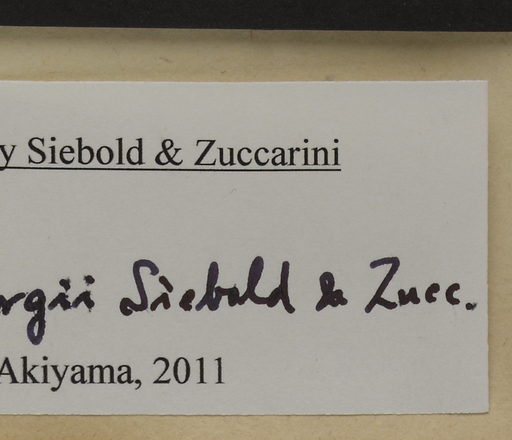 y Siebold & Zuccarini
rgii Siebold & Zucc.
Akiyama, 2011